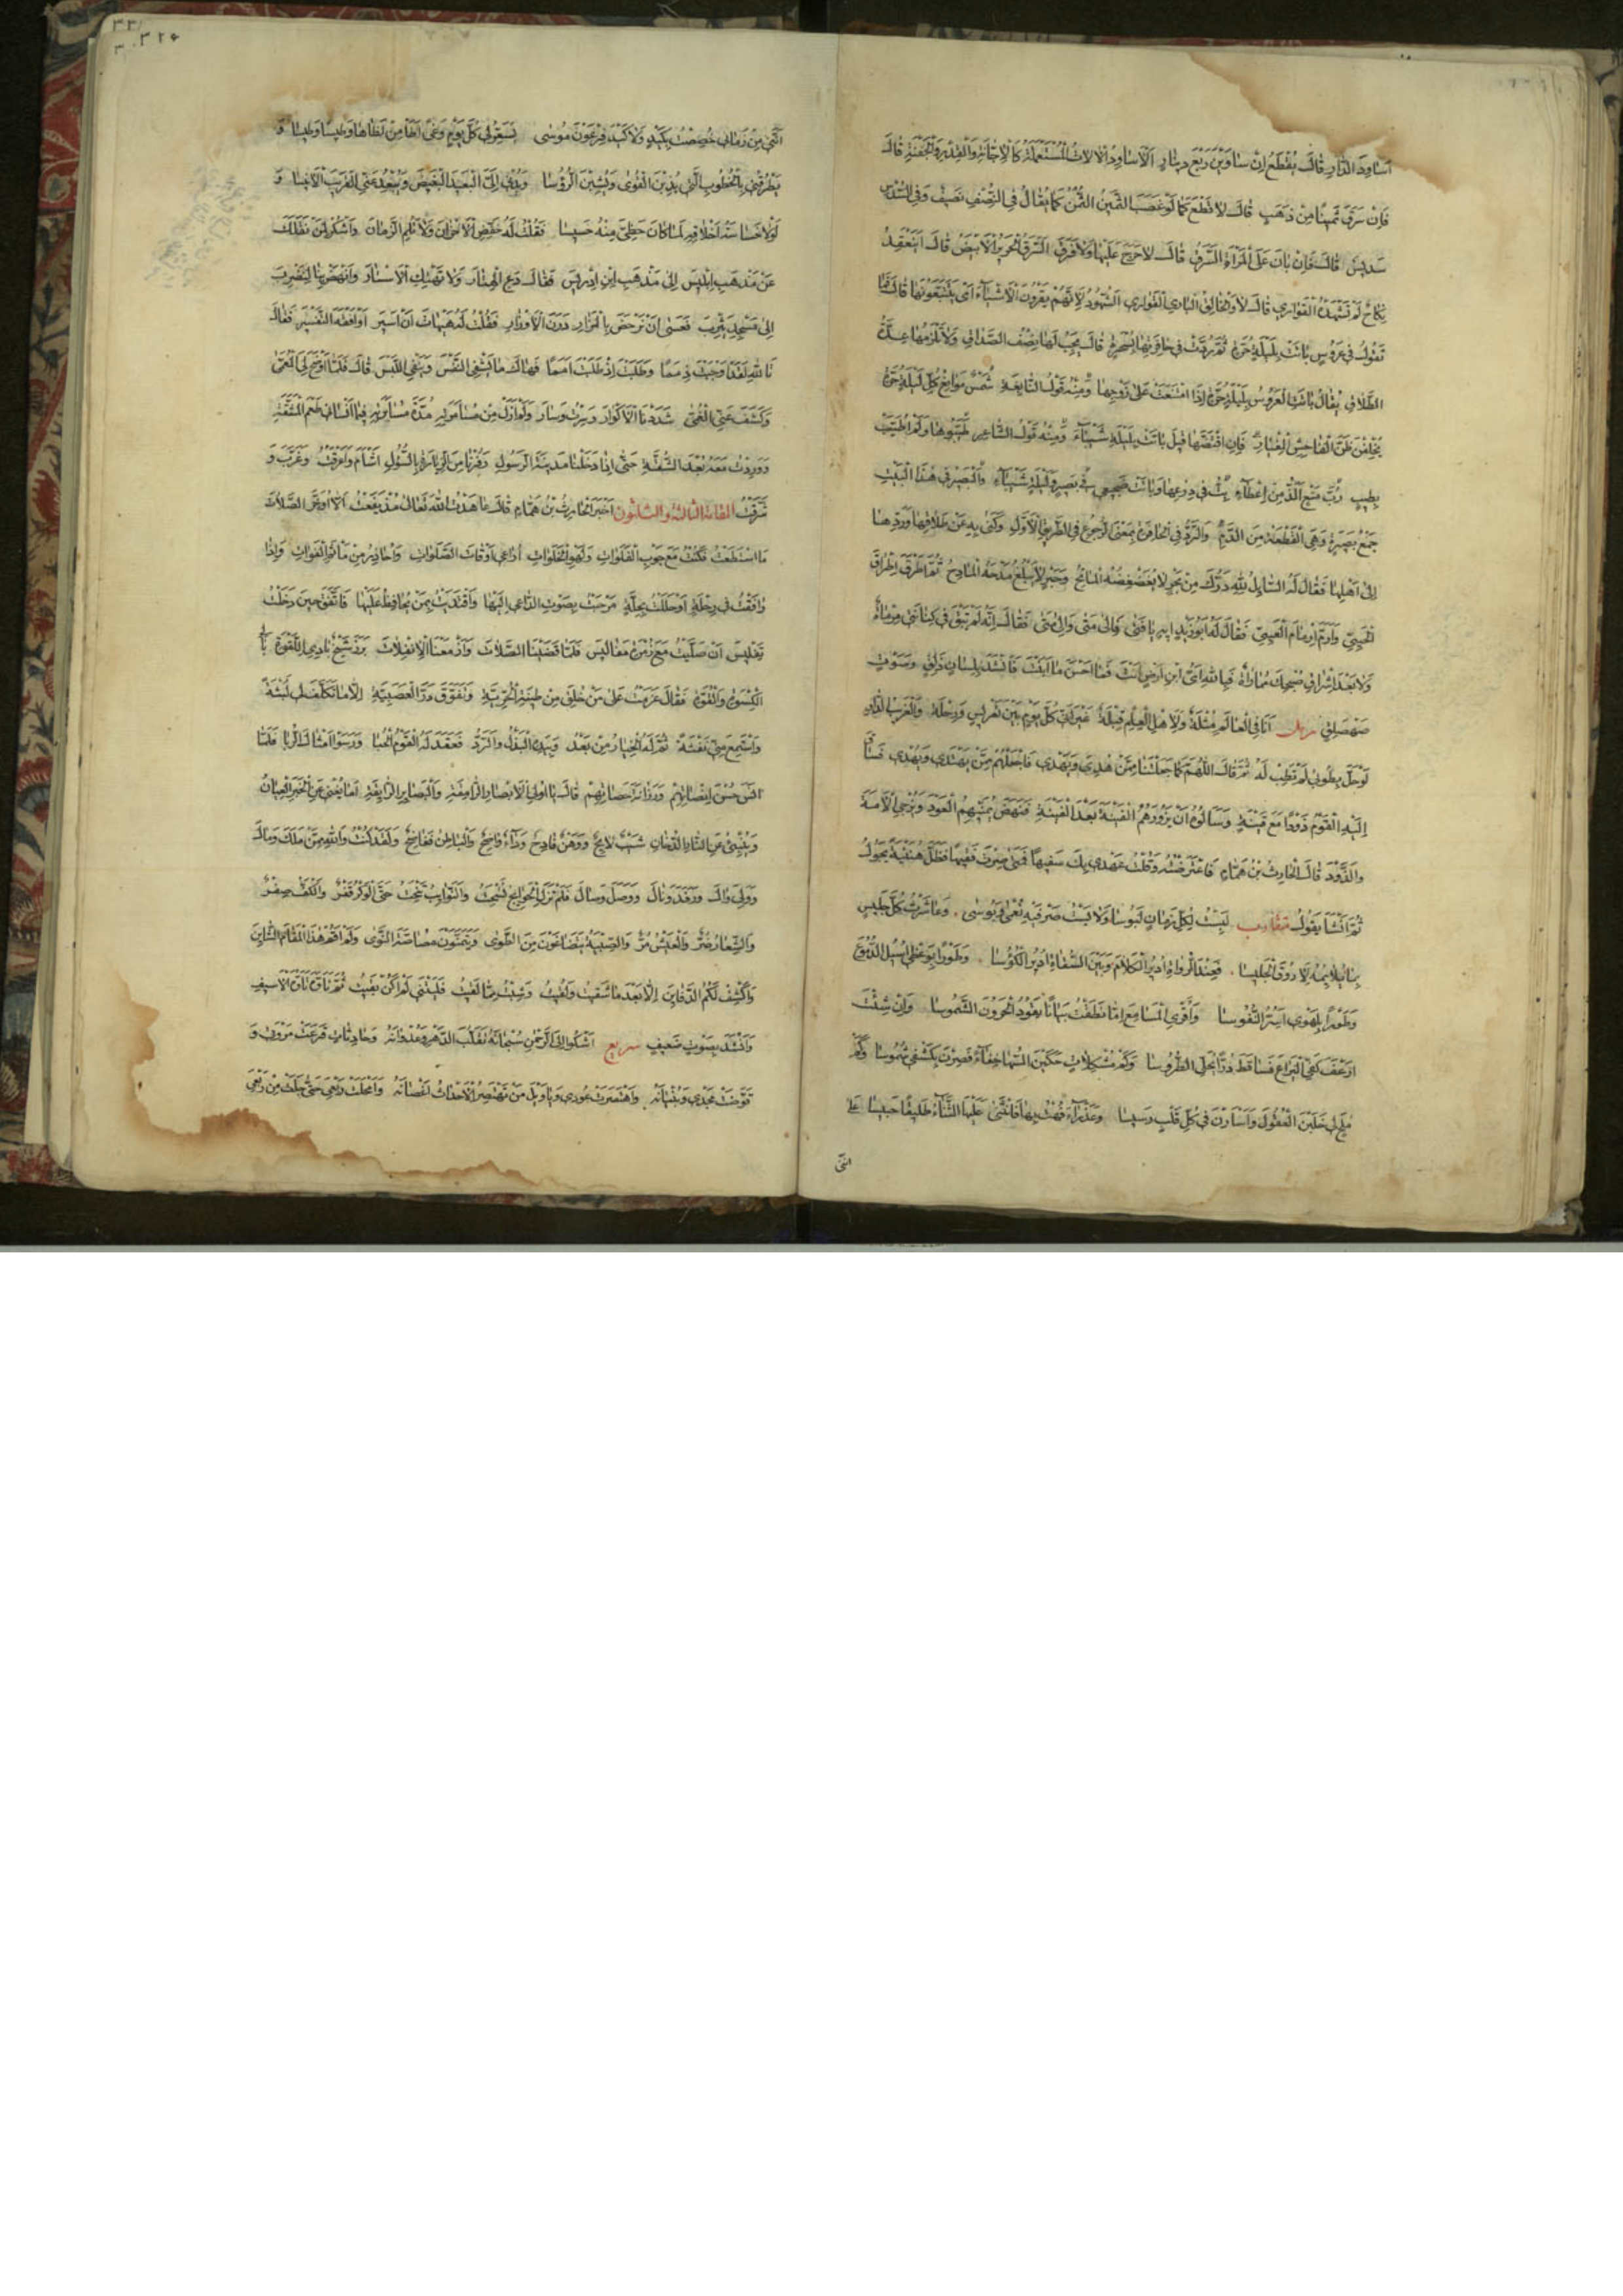 اَسَاوِدَ الدَّارِ قَالَ يُقْطَعُ اِنْ سَاوَيْنَ رُبْعَ دِينَارٍ اَلْاَسَاوِدُ الْاٰلَاتُ الْمُسْتَعْمَلَةُ كَالْاِجَّانَةِ وَالْقِدْرِ وَالْجَفْنَةِ قَالَ
فَاِنْ سَرَقَ ثَمِينًا مِنْ ذَهَبٍ قَالَ لَا قَطْعَ كَمَا لَوْ غَصَبَ الثَّمِينُ الثُّمُنُ كَمَا يُقَالُ فِي النِّصْفِ نَصِيفٌ وَفِي السُّدْسِ
سَدِيسٌ قَالَ فَاِنْ بَانَ عَلَى الْمَرْاَةِ السَّرَقُ قَالَ لَا حَرَجَ عَلَيْهَا وَلَا فَرَقَ السَّرَقُ الْحَرِيرُ الْاَبْيَضُ قَالَ اَيَنْعَقِدُ
نِكَاحٌ لَمْ تَشْهَدْهُ الْقَوَارِي قَالَ لَا وَالْخَالِقِ الْبَارِي الْقَوَارِي الشُّهُودُ لِاَنَّهُمْ يَقْرُونَ الْاَشْيَاءَ اَيْ يَتَتَبَّعُونَهَا قَالَ فَمَا
تَقُولُ فِي عَرُوسٍ بَاتَتْ بِلَيْلَةِ حُرَّةٍ ثُمَّ رُدَّتْ فِي حَافِرَتِهَا بِسُحْرَةٍ قَالَ يَجِبُ لَهَا نِصْفُ الصَّدَاقِ وَلَا تَلْزَمُهَا عِدَّةُ
الطَّلَاقِ يُقَالُ بَاتَتِ الْعَرُوسُ بِلَيْلَةِ حُرَّةٍ اِذَا امْتَنَعَتْ عَلَى زَوْجِهَا وَمِنْهُ قَوْلُ النَّابِغَةِ شُمُسٌ مَوَانِعُ كُلِّ لَيْلَةِ حُرَّةٍ
يُخْلِفْنَ ظَنَّ الْفَاحِشِ الْمِغْيَارِ فَاِنِ افْتَضَّهَا قِيلَ بَاتَتْ بِلَيْلَةِ شَيْبَاءَ وَمِنْهُ قَوْلُ الشَّاعِرِ طَيَّبُوهَا وَلَمْ اُطَيَّبْ
بِطِيبٍ رُبَّ مَنْعٍ اَلَذُّ مِنْ اِعْطَاءٍ بِتُّ فِي دِرْعِهَا وَبَاتَتْ ضَجِيعِي فِي بَصِيرٍ وَلَيْلَةِ شَيْبَاءَ وَالْبَصِيرُ فِي هٰذَا الْبَيْتِ
جَمْعُ بَصِيرَةٍ وَهِيَ الْقِطْعَةُ مِنَ الدَّمِ وَالرَّدُّ فِي الْحَافِرَةِ بِمَعْنَى الرُّجُوعِ فِي الطَّرِيقِ الْاَوَّلِ وَكَنَى بِهِ عَنْ طَلَاقِهَا وَرَدِّهَا
اِلَى اَهْلِهَا فَقَالَ لَهُ السَّائِلُ لِلّٰهِ دَرُّكَ مِنْ بَحْرٍ لَا يُغَضْغِضُهُ الْمَاتِحُ وَحَبْرٍ لَا يَبْلُغُ مَدْحَهُ الْمَادِحُ ثُمَّ اَطْرَقَ اِطْرَاقَ
الْحَيِيِّ وَاَرَمَّ اِرْمَامَ الْعَيِيِّ فَقَالَ لَهُ اَبُو زَيْدٍ اِيهِ يَا فَتَى فَاِلَى مَتَى وَاِلَى مَتَى فَقَالَ اِنَّهُ لَمْ تَبْقَ فِي كِنَانَتِي مِرْمَاةٌ
وَلَا بَعْدَ اِشْرَاقِ صُبْحِكَ مُمَارَاةٌ فَبِاللّٰهِ اَيُّ ابْنِ اَرْضٍ اَنْتَ فَمَا اَحْسَنَ مَا اَبَنْتَ فَاَنْشَدَ بِلِسَانٍ ذَلِقٍ وَصَوْتٍ
صَهْصَلِقٍ رمل اَنَا فِي الْعَالَمِ مُثْلَهْ وَلِاَهْلِ الْعِلْمِ قِبْلَهْ غَيْرَ اَنِّي كُلَّ يَوْمٍ بَيْنَ تَعْرِيسٍ وَرِحْلَهْ وَالْغَرِيبُ الدَّارِ
لَوْ حَلَّ بِطُوبَى لَمْ تَطِبْ لَهْ ثُمَّ قَالَ اللّٰهُمَّ كَمَا جَعَلْتَنَا مِمَّنْ هُدِيَ وَيَهْدِي فَاجْعَلْهُمْ مِمَّنْ يَهْتَدِي وَيُهْدِي فَسَاقَ
اِلَيْهِ الْقَوْمُ ذَوْدًا مَعَ قَيْنَةٍ وَسَاَلُوهُ اَنْ يَزُورَهُمُ الْفَيْنَةَ بَعْدَ الْفَيْنَةِ فَنَهَضَ يُمَنِّيهِمُ الْعَوْدَ وَيُزْجِي الْاَمَةَ
وَالذَّوْدَ قَالَ الْحَارِثُ بْنُ هَمَّامٍ فَاعْتَرَضْتُهُ وَقُلْتُ عَهْدِي بِكَ سَفِيهًا فَمَتَى صِرْتَ فَقِيهًا فَظَلَّ هُنَيْهَةً يَجُولُ
ثُمَّ اَنْشَاَ يَقُولُ متقارب لَبِسْتُ لِكُلِّ زَمَانٍ لَبُوسَا وَلَابَسْتُ صَرْفَيْهِ نُعْمَى وَبُوسَى وَعَاشَرْتُ كُلَّ جَلِيسٍ
بِمَا يُلَايِمُهُ لِاَرُوقَ الْجَلِيسَا فَعِنْدَ الرُّوَاةِ اُدِيرُ الْكَلَامَ وَبَيْنَ السُّقَاةِ اُدِيرُ الْكُؤُسَا وَطَوْرًا بِوَعْظِي اُسِيلُ الدُّمُوعَ
وَطَوْرًا بِلَهْوِي اَسُرُّ النُّفُوسَا وَاُقْرِي الْمَسَامِعَ اِمَّا نَطَقْتُ بَيَانًا يَقُودُ الْحَرُونَ الشَّمُوسَا وَاِنْ شِئْتُ
اَرْعَفَ كَفِّي الْيَرَاعَ فَسَاقَطَ دُرًّا يُحَلِّي الطُّرُوسَا وَكَمْ مُشْكِلَاتٍ حَكَيْنَ السُّهَا خَفَاءً فَصِرْنَ بِكَشْفِي شُمُوسَا وَكَمْ
مُلَحٍ لِي خَلَبْنَ الْعُقُولَ وَاَسْاَرْنَ فِي كُلِّ قَلْبٍ رَسِيسَا وَعَذْرَاءَ فُهْتُ بِهَا فَانْثَنَى عَلَيْهَا الثَّنَاءُ طَلِيقًا حَبِيسَا عَلَى
اننى
٣٢۶
اَنَّنِي مِنْ زَمَانِي خُصِصْتُ بِكَيْدٍ وَلَا كَيْدَ فِرْعَوْنَ مُوسَى يُسَعِّرُ لِي كُلَّ يَوْمٍ وَغًى اَطَا مِنْ لَظَاهَا وَطِيسًا وَطِيسَا وَ
يَطْرُقُنِي بِالْخُطُوبِ الَّتِي يُذِبْنَ الْقُوَى وَيُشِبْنَ الرُّؤُسَا وَيُدْنِي اِلَيَّ الْبَعِيدَ الْبَغِيضَ وَيُبْعِدُ عَنِّي الْقَرِيبَ الْاَنِيسَا وَ
لَوْلَا خَسَاسَةُ اَخْلَاقِهِ لَمَا كَانَ حَظِّي مِنْهُ خَسِيسَا فَقُلْتُ لَهُ خَفِّضِ الْاَحْزَانَ وَلَا تَلُمِ الزَّمَانَ وَاشْكُرْ لِمَنْ نَقَلَكَ
عَنْ مَذْهَبِ اِبْلِيسَ اِلَى مَذْهَبِ ابْنِ اِدْرِيسَ فَقَالَ دَعِ الْهِتَارَ وَلَا تَهْتِكِ الْاَسْتَارَ وَانْهَضْ بِنَا لِنَضْرِبَ
اِلَى مَسْجِدِ يَثْرِبَ فَعَسَى اَنْ نَرْحَضَ بِالْمَزَارِ دَرَنَ الْاَوْزَارِ فَقُلْتُ لَهُ هَيْهَاتَ اَنْ اَسِيرَ اَوْ اَفْقَهَ التَّفْسِيرَ فَقَالَ
تَاللّٰهِ لَقَدْ اَوْجَبْتَ ذِمَمًا وَطَلَبْتَ اِذْ طَلَبْتَ اَمَمًا فَهَاكَ مَا يَشْفِي النَّفْسَ وَيَنْفِي اللَّبْسَ قَالَ فَلَمَّا اَوْضَحَ لِي الْمُعَمَّى
وَكَشَفَ عَنِّي الْغُمَّى شَدَدْنَا الْاَكْوَارَ وَسِرْتُ وَسَارَ وَلَمْ اَزَلْ مِنْ مُسَامَرَتِهِ مُدَّةَ مُسَايَرَتِهِ فِيمَا اَنْسَانِي طَعْمَ الْمَشَقَّةِ
وَوَدِدْتُ مَعَهُ بُعْدَ الشُّقَّةِ حَتَّى اِذَا دَخَلْنَا مَدِينَةَ الرَّسُولِ وَفُزْنَا مِنَ الزِّيَارَةِ بِالسُّولِ اَشْاَمَ وَاَعْرَقْتُ وَغَرَّبَ وَ
شَرَّقْتُ المقامة الثالثة والثلثون اَخْبَرَ الْحَارِثُ بْنُ هَمَّامٍ قَالَ عَاهَدْتُ اللّٰهَ تَعَالَى مُذْ يَفَعْتُ اَلَّا اُؤَخِّرَ الصَّلَاةَ
مَا اسْتَطَعْتُ فَكُنْتُ مَعَ جَوْبِ الْفَلَوَاتِ وَلَهْوِ الْخَلَوَاتِ اُرَاعِي اَوْقَاتَ الصَّلَوَاتِ وَاُحَاذِرُ مِنْ مَاْثَمِ الْفَوَاتِ وَاِذَا
رَافَقْتُ فِي رِحْلَةٍ اَوْ حَلَلْتُ بِحِلَّةٍ مَرْحَبْتُ بِصَوْتِ الدَّاعِي اِلَيْهَا وَاقْتَدَيْتُ بِمَنْ يُحَافِظُ عَلَيْهَا فَاتَّفَقَ حِينَ دَخَلْتُ
تَفْلِيسَ اَنْ صَلَّيْتُ مَعَ زُمْرَةِ مَفَالِيسَ فَلَمَّا قَضَيْنَا الصَّلَاةَ وَاَزْمَعْنَا الْاِنْفِلَاتَ بَرَزَ شَيْخٌ بَادِي اللَّقْوَةِ بَالِي
الْكِسْوَةِ وَالْقُوَّةِ فَقَالَ عَزَمْتُ عَلَى مَنْ خُلِقَ مِنْ طِينَةِ الْحُرِّيَّةِ وَتَفَوَّقَ دَرَّ الْعَصَبِيَّةِ اِلَّا مَا تَكَلَّفَ لِي لُبْثَةً
وَاسْتَمَعَ مِنِّي نَفْثَةً ثُمَّ لَهُ الْخِيَارُ مِنْ بَعْدُ وَبِيَدِهِ الْبَذْلُ وَالرَّدُّ فَعَقَدَ لَهُ الْقَوْمُ الْحُبَا وَرَسَوْا اَمْثَالَ الرُّبَا فَلَمَّا
اٰنَسَ حُسْنَ اِنْصَاتِهِمْ وَرَزَانَةَ حَصَاتِهِمْ قَالَ يَا اُولِي الْاَبْصَارِ الرَّامِقَةِ وَالْبَصَائِرِ الرَّائِقَةِ اَمَا يُغْنِي عَنِ الْخَبَرِ الْعِيَانُ
وَيُنْبِئُ عَنِ النَّارِ الدُّخَانُ شَيْبٌ لَائِحٌ وَوَهْنٌ فَادِحٌ وَدَاءٌ وَاضِحٌ وَالْبَاطِنُ فَفَاضِحٌ وَلَقَدْ كُنْتُ وَاللّٰهِ مِمَّنْ مَلَكَ وَمَالَ
وَوَلِيَ وَاٰلَ وَرَفَدَ وَنَالَ وَوَصَلَ وَصَالَ فَلَمْ تَزَلِ الْجَوَائِحُ تَسْحَتُ وَالنَّوَائِبُ تَنْحَتُ حَتَّى الْوَكْرُ قَفْرٌ وَالْكَفُّ صِفْرٌ
وَالشِّعَارُ ضُرٌّ وَالْعَيْشُ مُرٌّ وَالصِّبْيَةُ يَتَضَاغَوْنَ مِنَ الطَّوَى وَيَتَمَنَّوْنَ مُصَاصَةَ النَّوَى وَلَمْ اَقُمْ هٰذَا الْمَقَامَ الشَّائِنَ
وَاَكْشِفْ لَكُمُ الدَّفَائِنَ اِلَّا بَعْدَمَا شَقِيتُ وَلُقِيتُ وَشِبْتُ مِمَّا لَقِيتُ فَلَيْتَنِي لَمْ اَكُنْ بَقِيتُ ثُمَّ تَاَوَّهَ تَاَوُّهَ الْاَسِيفِ
وَاَنْشَدَ بِصَوْتٍ ضَعِيفٍ سريع اَشْكُو اِلَى الرَّحْمٰنِ سُبْحَانَهُ تَقَلُّبَ الدَّهْرِ وَعُدْوَانَهُ وَحَادِثَاتٍ قَرَعَتْ مَرْوَتِي وَ
قَوَّضَتْ مَجْدِي وَبُنْيَانَهُ وَاهْتَصَرَتْ عُودِي وَيَا وَيْلَ مَنْ تَهْتَصِرُ الْاَحْدَاثُ اَغْصَانَهُ وَاَمْحَلَتْ رَبْعِيَ حَتَّى جَلَتْ مِنْ رَبْعِيَ